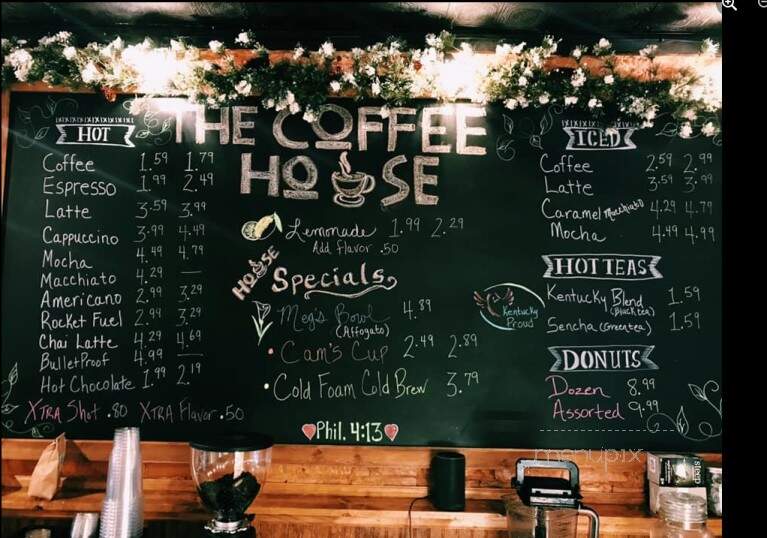 THE COFFEE
HOUSE
HOT
Coffee 1.59 1.79
Espresso 1.99 2.49
Latte 3.59 3.99
Cappuccino 3.99 4.49
Mocha 4.49 4.79
Macchiato 4.29 —
Americano 2.99 3.29
Rocket Fuel 2.99 3.29
Chai Latte 4.29 4.69
BulletProof 4.99 —
Hot Chocolate 1.99 2.19
XTRA Shot .80 XTRA Flavor .50
Lemonade 1.99 2.29
Add flavor .50
HOUSE
Specials
Meg's Bowl 4.89
(Affogato)
• Cam's Cup 2.49 2.89
• Cold Foam Cold Brew 3.79
Phil. 4:13
Kentucky
Proud
ICED
Coffee 2.59 2.99
Latte 3.59 3.99
Caramel Macchiato 4.29 4.79
Mocha 4.49 4.99
HOT TEAS
Kentucky Blend 1.59
(Black tea)
Sencha (Green tea) 1.59
DONUTS
Dozen 8.99
Assorted 9.99
menupix
sleep